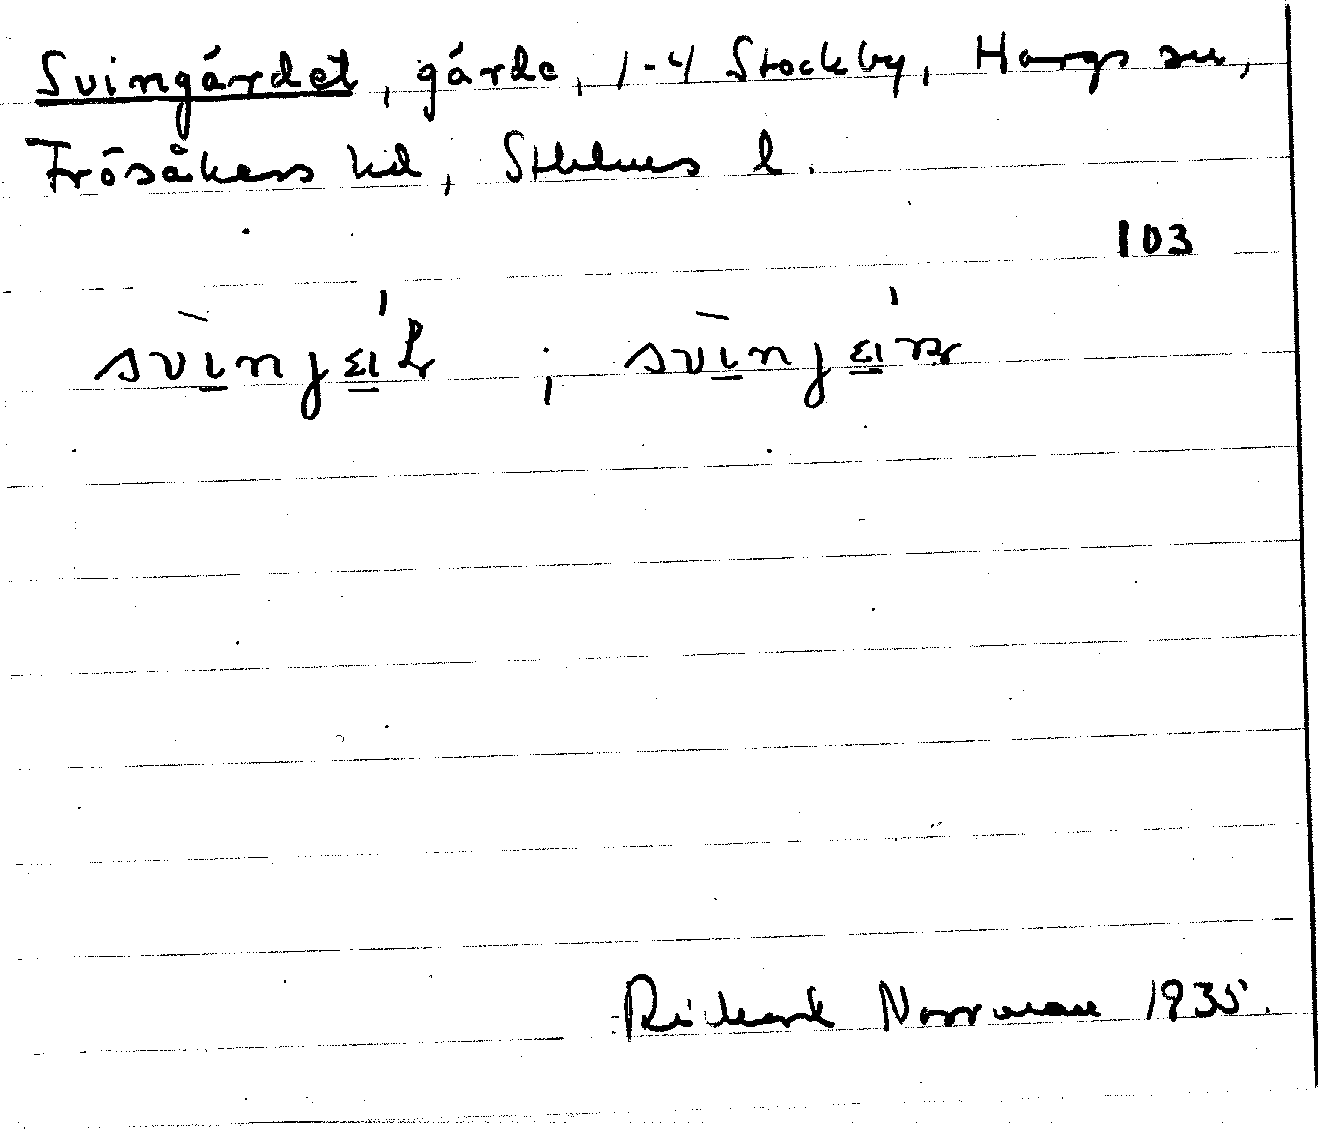 Svingärdet, gärde, 1-4 Stockby, Hargs sn,
Frösåkers hd, Sthlms l.
103
Rickard Norrman 1935.